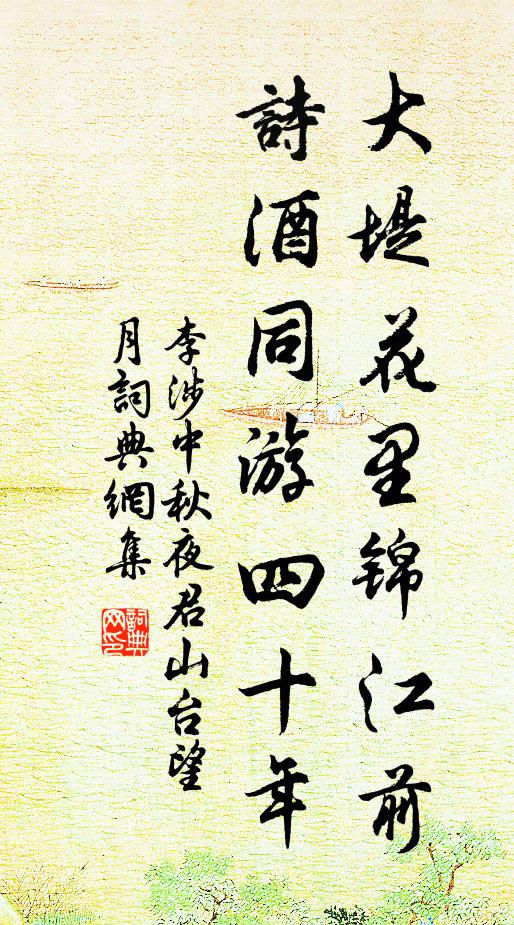 大堤花里锦江前
詩酒同游四十年
李涉中秋夜君山台望
月詞典網集
詞典
网印